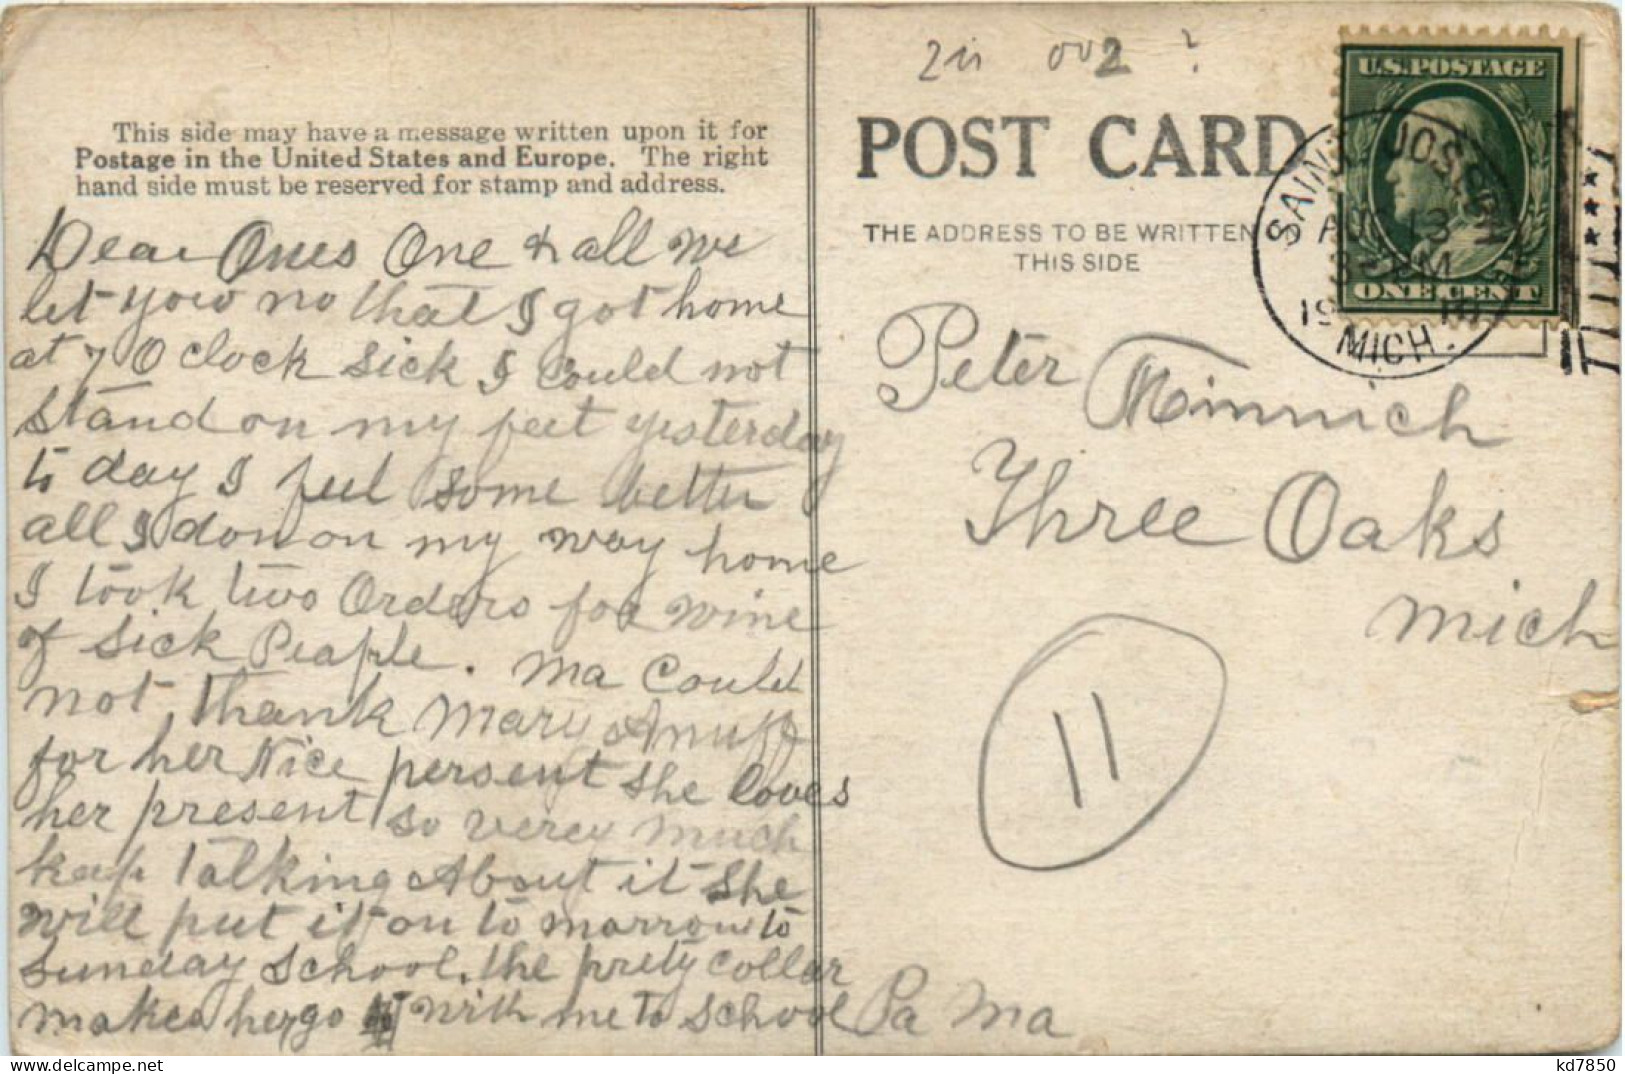 This side may have a message written upon it for
Postage in the United States and Europe. The right
hand side must be reserved for stamp and address.
Dear Ones One & all We
let yow no that I got home
at 7 O clock sick I could not
stand on my feet yesterday
to day I feel some better
all I don on my way home
I took two Orders for wine
of sick People. Ma could
not thank Mary
for her Nice persent she loves
her present so verey much
keep talking About it she
will put it on to morrow to
sunday school. the prety coller
makes her go with me to school Pa Ma
2 002 ?
POST CARD
THE ADDRESS TO BE WRITTEN
THIS SIDE
U.S. POSTAGE
ONE CENT
SAINT JOSEPH
AUG 13
M
19
MICH.
Peter
Three Oaks
Mich
11
kd7850